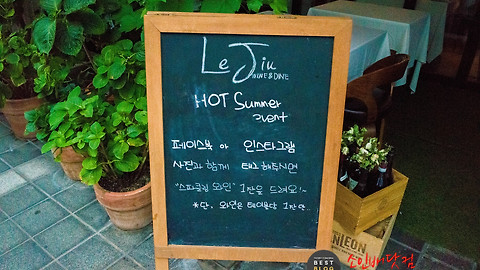 Le Jiu
WINE & DINE
HOT Summer
event
페이스북 아 인스타그램
사진과 함께 태그해주시면
"스파클링 와인" 1잔을 드려요!~
*단, 와인은 테이블당 1잔만..
NIEON
BEST
BLOG